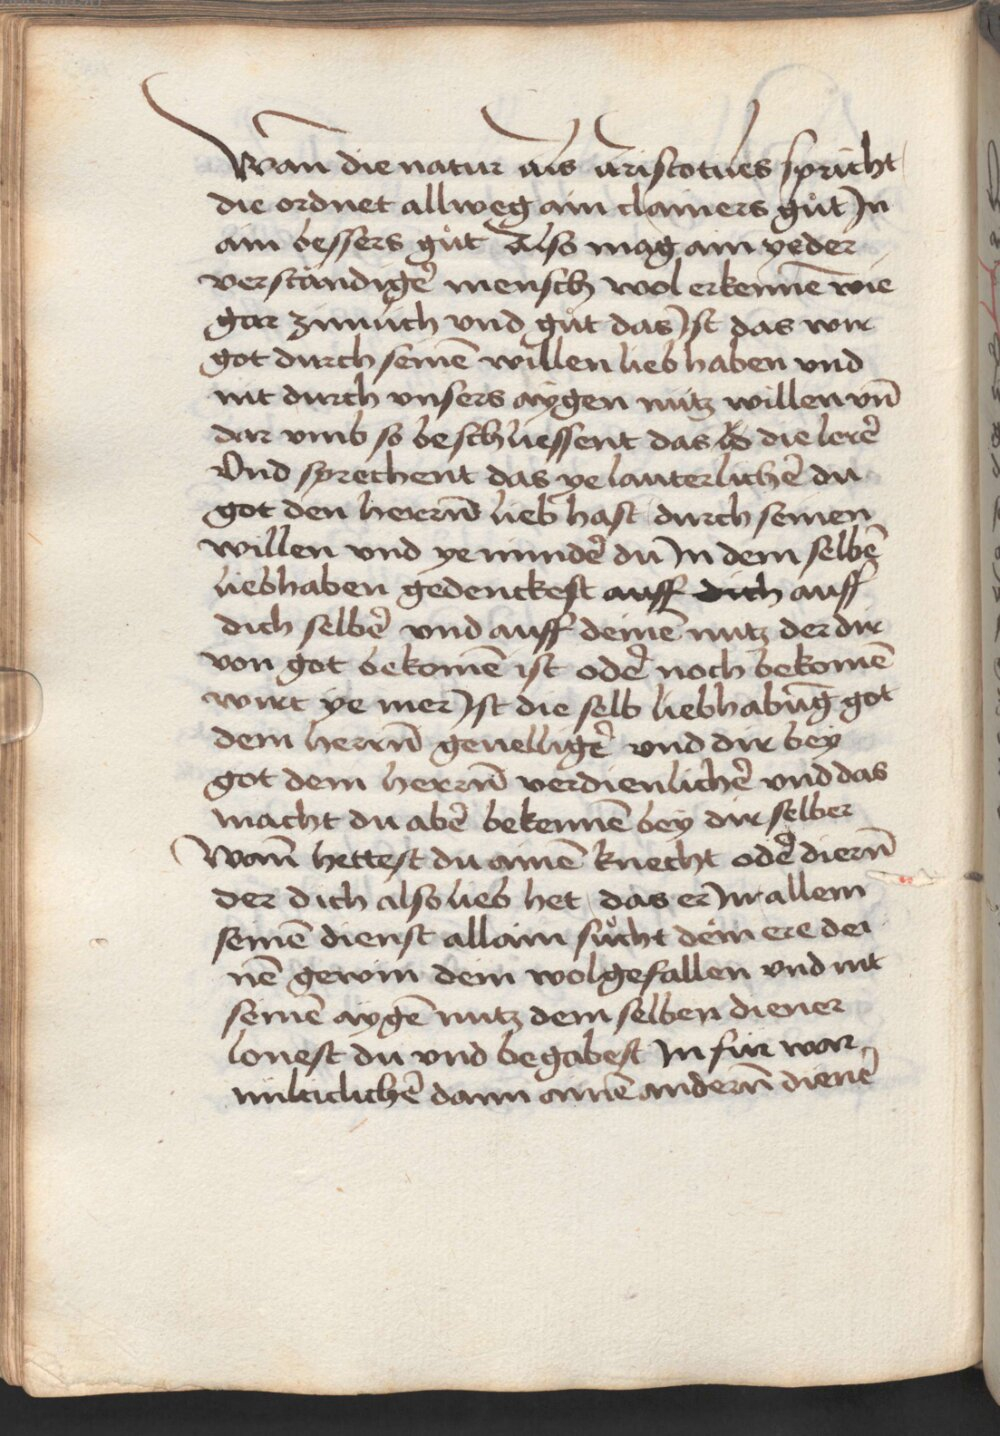 Wan̄ die natur als aristotiles spricht
die ordnet allweg ain clainers gůt Jn
ain bessers gůt Also mag ain yeder
verständigē mensch wol erkennē wie
gar zimlich vnd gůt das Jst das wir
got durch seinē willen lieb haben vnd
nit durch vnsers aygen nutz willen vn̄
dar vmb so beschliessent das die lerē
Vnd sprechent das ye lauterlichē du
got den herrn̄ lieb hast durch seinen
willen vnd ye mindē du Jn dem selbē
liebhaben gedenckest auff dich auff
dich selbē vnd auff deinē nutz der dir
von got bekomē ist odē noch bekomē
wirt ye mer Jst die selb liebhabūg got
dem herrn̄ geuelligē vnd dir bey
got dem herrn̄ verdienlichē vnd das
macht du abē bekennē bey dir selber
Wan̄ hettest du ainē knecht odē diern̄
der dich also lieb het das er Jn allem
seinē dienst allain sůcht dein ere dei
nē gewin dein wolgefallen vnd nit
seinē aygē nutz dem selben diener
lonest du vnd begabest Jn für war
milticlichē dann ainē andern̄ dienē